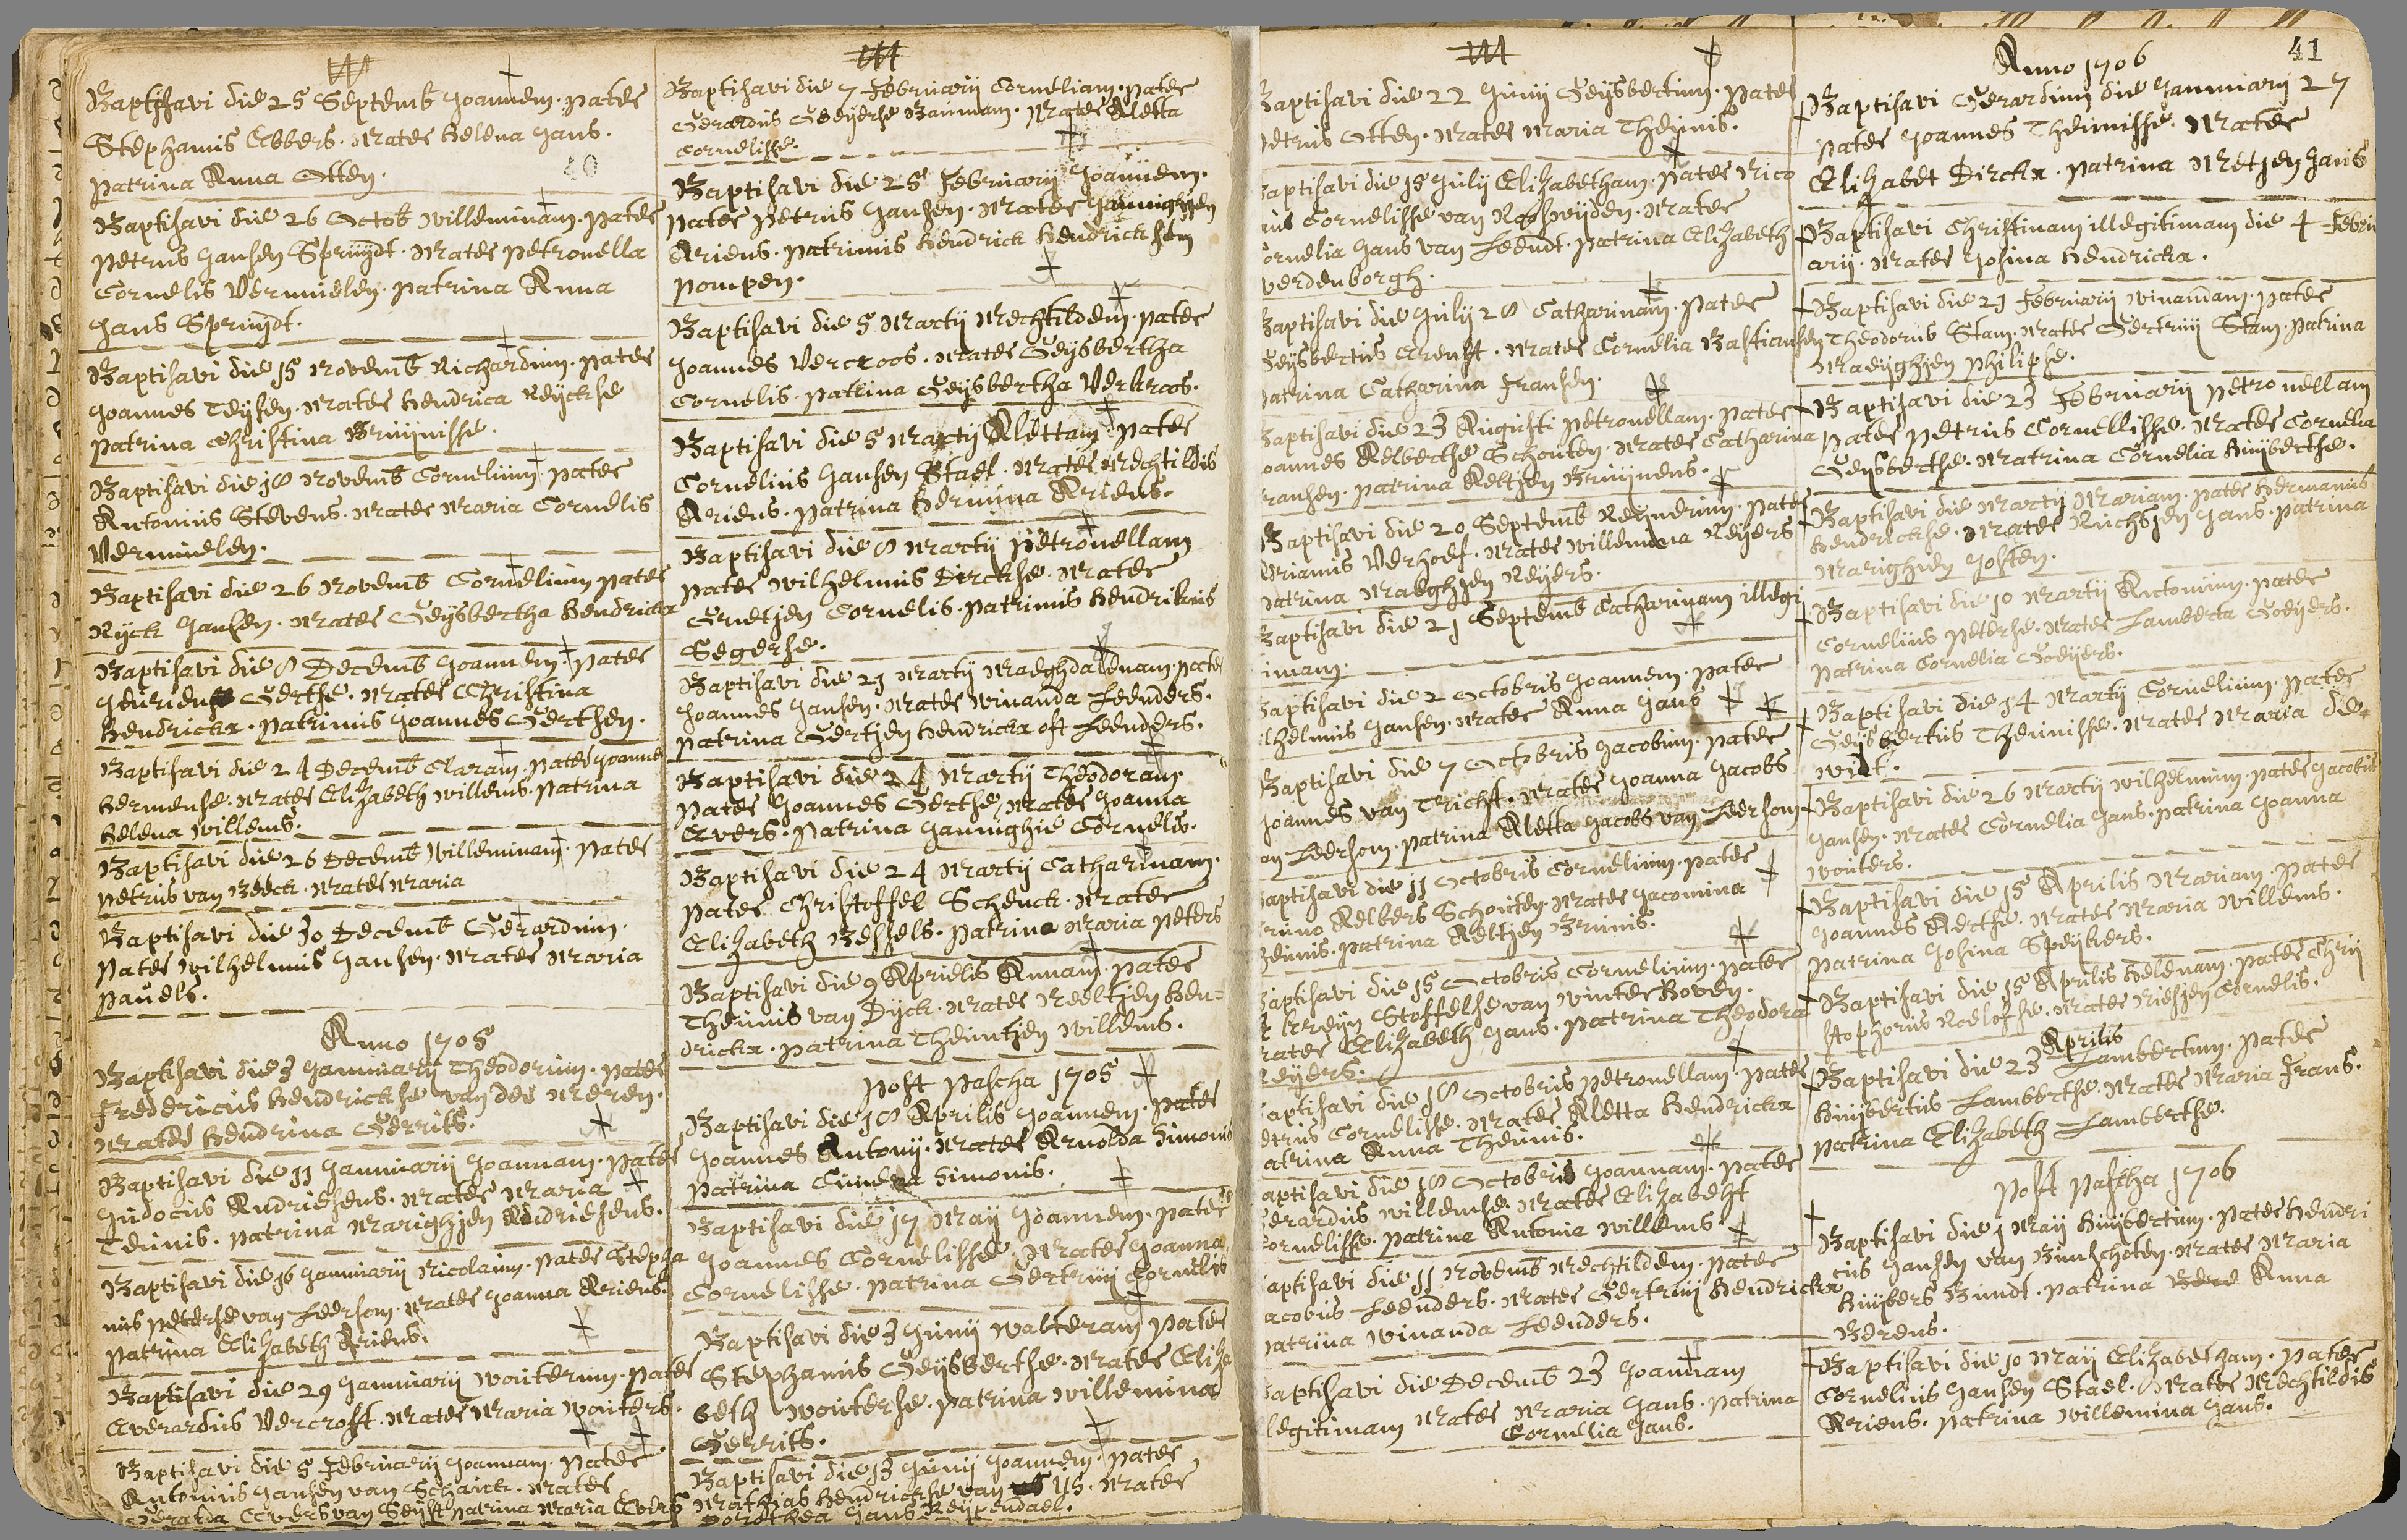 Baptisavi die 25 Septemb Joannem. pater
Stephanus Ebbers. Mater Helena Jans.
patrina Anna Otten.
40
Baptisavi die 26 Octob Willeminam. pater
petrus Jansen Spruijdt. Mater petronella
Cornelis Vermeulen. patrina Anna
Jans Spruijdt.
Baptisavi die 15 Novemb Richardum. pater
Joannes Teijsen. Mater Hendrica Reijckse
patrina Christina Bruijnisse.
Baptisavi die 18 Novemb Cornelium. pater
Antonius Stevens. Mater Maria Cornelis
Vermeulen.
Baptisavi die 26 Novemb Cornelium pater
Rijck Jansen. Mater Geijsbertha Hendrickx
Baptisavi die 8 Decemb Joannem. pater
Gerthse. Mater Christina
Hendrickx. patrinus Joannes Gerthsen.
Baptisavi die 24 Decemb Claram. pater Joannes
Hermense. Mater Elizabeth Willems. patrina
Helena Willems.
Baptisavi die 26 Decemb Willeminam. pater
petrus van Beeck. Mater Maria
Baptisavi die 30 Decemb Gerardum.
pater Wilhelmus Jansen. Mater Maria
pauels.
Anno 1705
Baptisavi die 3 Januarij Theodorum. pater
Fredericus Hendrickse van der Meren.
Mater Hendrina Gerrits.
Baptisavi die 11 Januarij Joannam. pater
Judocus Andriesens. Mater Maria
Teunis. patrina Marighjen Andriesens.
Baptisavi die 16 Januarij Nicolaum. pater Stepha
nus peterse van Leersom. Mater Joanna Ariens.
patrina Elizabeth Ariens.
Baptisavi die 29 Januarij Wouterum. pater
Everardus Vercroft. Mater Maria Wouters.
Baptisavi die 5 Februarij Joannam. pater
Antonius Jansen van Schaick. Mater
Geralda Evers van Seijst patrina Maria Evers
Baptisavi die 7 Februarij Corneliam. pater
Gerardus Goeijerse Bauman. Mater Aletta
Cornelisse.
Baptisavi die 25 Februarij Joannem.
pater petrus Jansen. Mater Jannighjen
Ariens. patrinus Hendrick Hendricksen
pompen.
Baptisavi die 5 Martij Mechtildem. pater
Joannes Vercroos. Mater Geijsbertha
Cornelis. patrina Geijsbertha Verkroos.
Baptisavi die 5 Martij Alettam. pater
Cornelius Jansen Stael. Mater Mechtildis
Ariens. patrina Hermina Ariens.
Baptisavi die 8 Martij petronellam
pater Wilhelmus Dirckse. Mater
Grietjen Cornelis. patrinus Hendrikus
Segerse.
Baptisavi die 21 Martij Maeghdalenam. pater
Joannes Jansen. Mater Winanda Leenders.
patrina Gertjen Hendrickx oft Leenders.
Baptisavi die 24 Martij Theodoram.
pater Joannes Gerthse, Mater Joanna
Evers. patrina Jannighie Cornelis.
Baptisavi die 24 Martij Catharinam.
pater Christoffel Schenck. Mater
Elizabeth Bessels. patrina Maria peters
Baptisavi die 9 Aprielis Annam. pater
Theunis van Dijck. Mater Neeltjen Hen=
drickx. patrina Theuntjen Willems.
post pascha 1705
Baptisavi die 18 Aprilis Joannem. pater
Joannes Antonij. Mater Arnolda Simonis
patrina Simonis.
Baptisavi die 17 Maij Joannem. pater
Joannes Cornelisse. Mater Joanna
Cornelisse. patrina Gertruij Cornelis
Baptisavi die 3 Junij Walteram pater
Stephanus Geijsbertse. Mater Eliza
beth Wouterse. patrina Willemina
Gerrits.
Baptisavi die 13 Junij Joannem. pater
Mathias Hendrickse van Ys. Mater
Dorothea Jans Reijpendael.
Baptisavi die 22 Junij Geijsbertum. pater
petrus Otten. Mater Maria Theunis.
Baptisavi die 15 Julij Elizabetham. pater Nico
Cornelisse van Mater
Cornelia Jans van Leendt. patrina Elizabeth
verdenborgh.
Baptisavi die Julij 28 Catharinam. pater
Geijsbertus Arenst. Mater Cornelia Bastiansen
patrina Catharina Fransen.
Baptisavi die 23 Augusti petronellam. pater
Joannes Aelbertse Schouten. Mater Catharina
Fransen. patrina Aeltjen Bruijnens.
Baptisavi die 20 Septemb Reijnerum. pater
Adrianus Verhoef. Mater Willemina Reijers
patrina Maeghjen Reijers.
Baptisavi die 21 Septemb Catharinam illegi
timam.
Baptisavi die 2 Octobris Joannem. pater
Wilhelmus Jansen. Mater Anna Jans
Baptisavi die 7 Octobris Jacobum. pater
Joannes van Tricht. Mater Joanna Jacobs
van Leersom. patrina Aletta Jacobs van Leersom
Baptisavi die 11 Octobris Cornelium. pater
Bruno Aelbers Schouten. Mater Jacomina
Teunis. patrina Aeltjen Brunis.
Baptisavi die 15 Octobris Cornelium. pater
Krijn Stoffelse van Winterhoven.
Mater Elizabeth Jans. patrina Theodora
Reijers.
Baptisavi die 18 Octobris petronellam. pater
petrus Cornelisse. Mater Aletta Hendrickx
patrina Anna Theunis.
Baptisavi die 18 Octobris Joannam. pater
Gerardus Willemse. Mater Elizabeht
Cornelisse. patrina Antonia Willems.
Baptisavi die 11 Novemb Mechtildem. pater
Jacobus Leenders. Mater Gertruij Hendrickx
patrina Winanda Leenders.
Baptisavi die Decemb 23 Joannam
illegitimam Mater Maria Jans. patrina
Cornelia Jans.
41
Anno 1706
Baptisavi Gerardum die Januarij 27
pater Joannes Theunisse. Mater
Elizabet Dirckx. patrina Metjen Jans
Baptisavi Christinam illegitimam die 4 Febru
arij. Mater Josina Hendrickx.
Baptisavi die 21 Februarij Winandam. pater
Theodorus Stam. Mater Gertruij Stam. patrina
Maeijghjen philipse.
Baptisavi die 23 Februarij petronellam
pater petrus Cornellisse. Mater Cornelia
Geijsbertse. Matrina Cornelia Huijbertse.
Baptisavi die Martij Mariam. pater Hermanus
Hendrickse. Mater Jans. patrina
Marighien Josten.
Baptisavi die 10 Martij Antonium. pater
Cornelius peterse. Mater Lamberta Goeijers.
patrina Cornelia Goeijers.
Baptisavi die 14 Martij Cornelium. pater
Geijsbertus Theunisse. Mater Maria de
Wit.
Baptisavi die 26 Martij Wilhelmum. pater Jacobus
Jansen. Mater Cornelia Jans. patrina Joanna
Wouters.
Baptisavi die 15 Aprilis Mariam. pater
Joannes Aertse. Mater Maria Willems.
patrina Josina Speijkers.
Baptisavi die 15 Aprilis Helenam. pater Chri
stophorus Roelofse. Mater Niesjen Cornelis.
Aprilis
Baptisavi die 23 Lambertum. pater
Huijbertus Lambertse. Mater Maria Frans.
patrina Elizabeth Lambertse.
post pascha 1706
Baptisavi die 1 Maij Huijbertum. pater Hendri
cus Jansen van Bunschoten. Mater Maria
Huijbers Bundt. patrina Anna
Berens.
Baptisavi die 10 Maij Elizabetham. pater
Cornelius Jansen Stael. Mater Mechtildis
Ariens. patrina Willemina Jans.